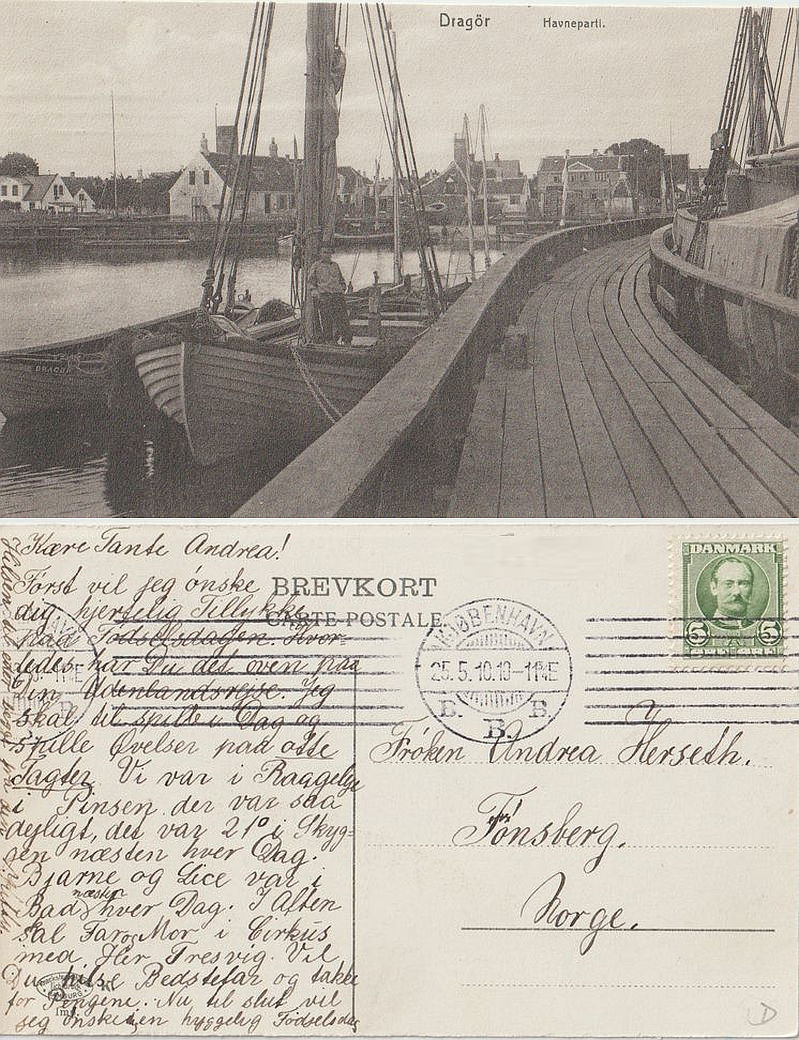 Dragör Havneparti.
DRAGÖR
Kære Tante Andrea!
Först vil jeg ønske
dig hjertelig Tillykke
paa Födselsdagen. Hvor-
ledes har Du det oven paa
Din Udenlandsrejse. Jeg
skal til spille i Dag og
spille Övelser paa otte
Tagter. Vi var i Raggelije
i Pinsen der var saa
dejligt, det var 21° i Skyg-
gen næsten hver Dag.
Bjarne og Lice var i
Bad næsten hver Dag. I Aften
sal Far og Mor i Cirkus
med Her Tresvig. Vil
Du hilse Bedstefar og takke
for Pengene. Nu til slut vil
jeg ønske en hyggelig Födselsdag
Hilsen
BREVKORT
CARTE-POSTALE
KJØBENHAVN
25.5.10.10-11 F.E
B. B. B.
DANMARK
5 5
ØRE
Frøken Andrea Herseth.
Tönsberg.
Norge.
Im
D